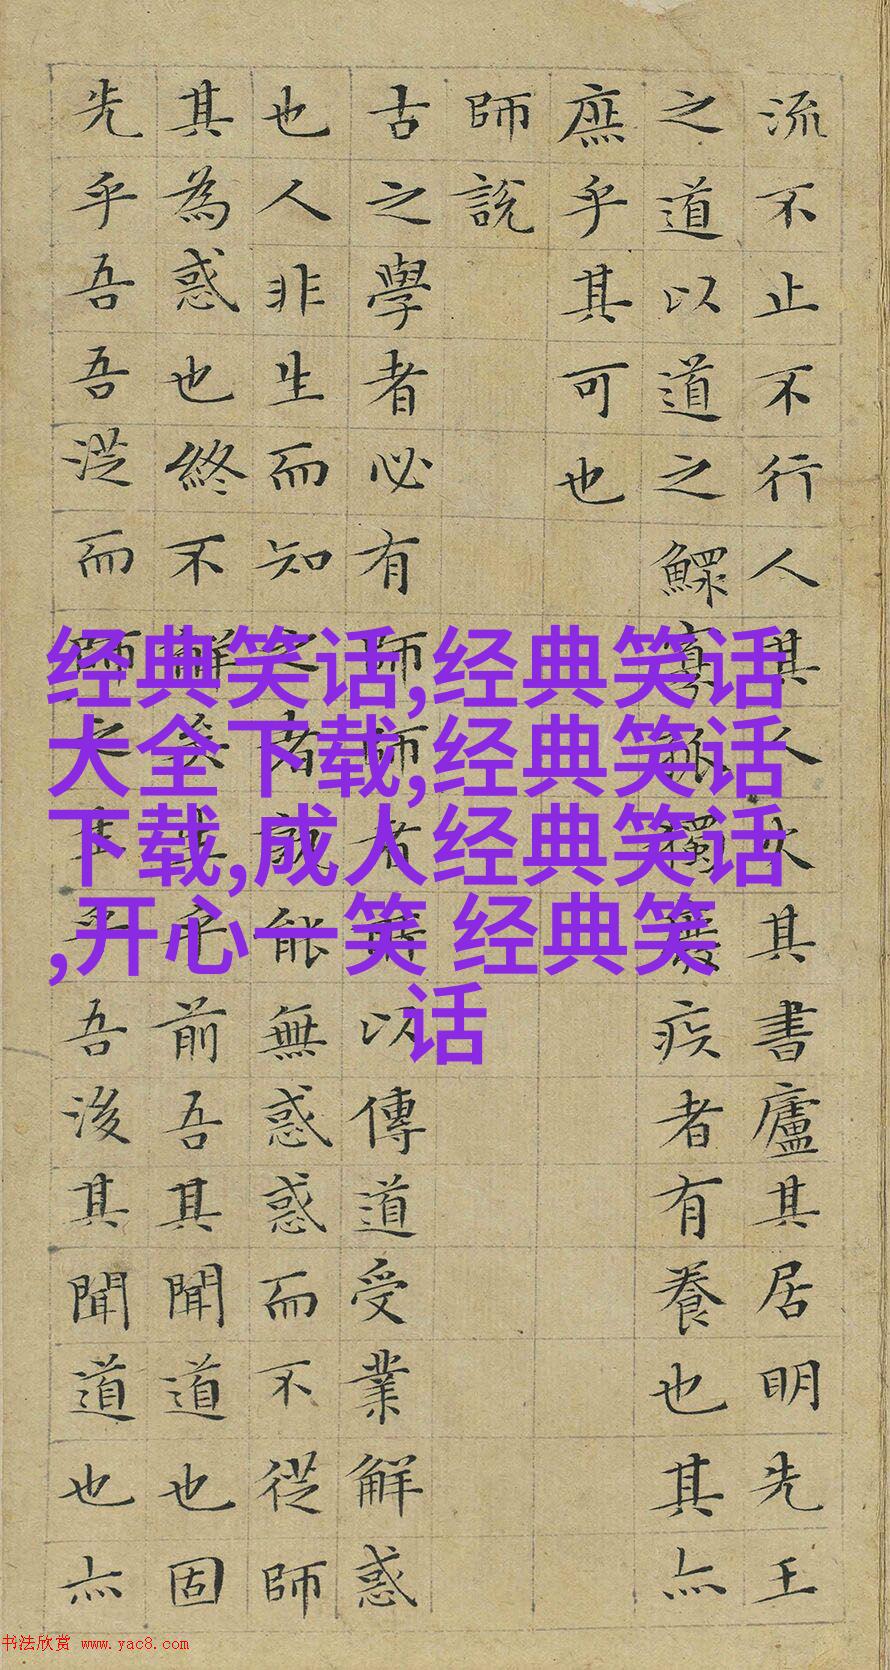 流不止不行人其人火其書廬其居明先王
之道以道之鰥寡孤獨廢疾者有養也其亦
庶乎其可也
師說
古之學者必有師師者所以傳道受業解惑
也人非生而知之者孰能無惑惑而不從師
其為惑也終不解矣生乎前吾其聞道也固
先乎吾吾從而師之生乎吾後其聞道也亦
经典笑话,经典笑话
大全下载,经典笑话
下载,成人经典笑话
,开心一笑 经典笑
话
书法欣赏 www.yac8.com